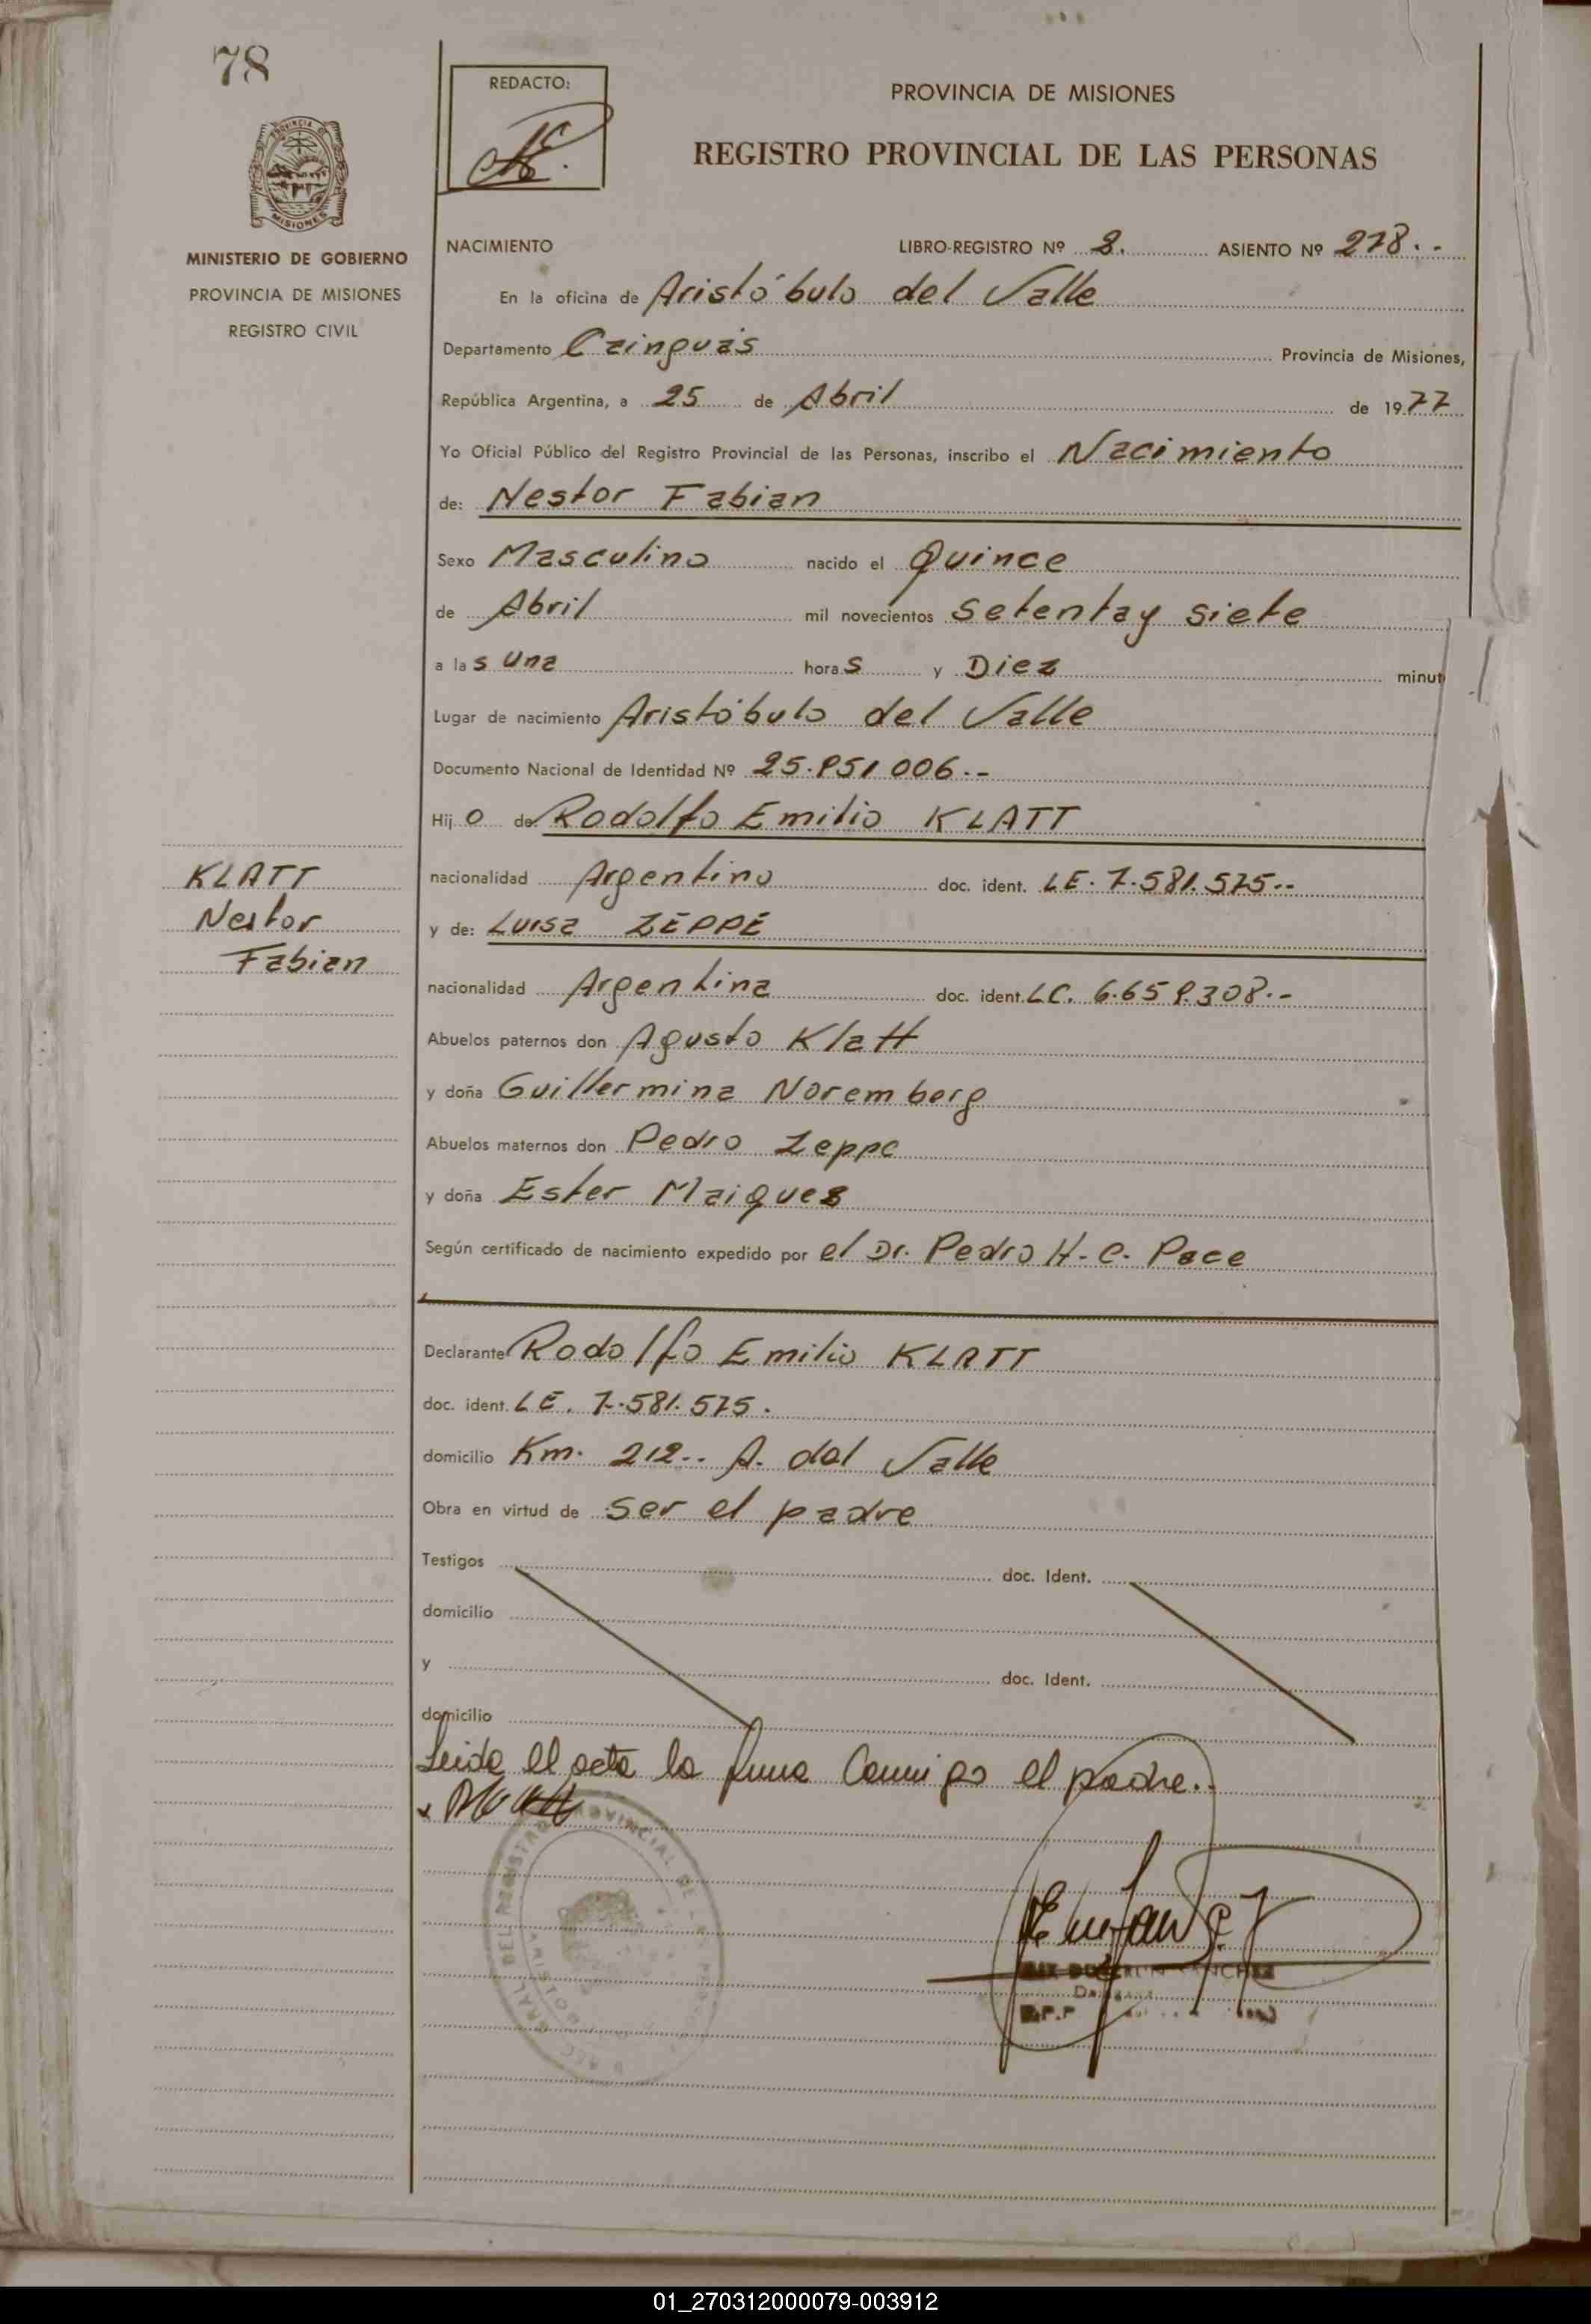 78
REDACTO:
PROVINCIA DE MISIONES
REGISTRO PROVINCIAL DE LAS PERSONAS
MISIONES
MINISTERIO DE GOBIERNO
PROVINCIA DE MISIONES
REGISTRO CIVIL
NACIMIENTO LIBRO-REGISTRO Nº 2. ASIENTO Nº 278.-
En la oficina de Aristóbulo del Valle
Departamento Cainguás Provincia de Misiones,
República Argentina, a 25 de Abril de 1977
Yo Oficial Público del Registro Provincial de las Personas, inscribo el Nacimiento
de: Nestor Fabian
Sexo Masculino nacido el Quince
de Abril mil novecientos setenta y siete
a las una horas y Diez minut
Lugar de nacimiento Aristóbulo del Valle
Documento Nacional de Identidad Nº 25.951006.-
Hijo de: Rodolfo Emilio KLATT
nacionalidad Argentino doc. ident. LE. 7.581.575.-
y de: Luisa ZEPPE
nacionalidad Argentina doc. ident. LC. 6.659.308.-
KLATT
Nestor
Fabian
Abuelos paternos don Agusto Klatt
y doña Guillermina Noremberg
Abuelos maternos don Pedro Zeppe
y doña Ester Maiquez
Según certificado de nacimiento expedido por el Dr. Pedro H. C. Pace
Declarante Rodolfo Emilio KLATT
doc. ident. LE. 7.581.575.
domicilio Km. 212.. A. del Valle
Obra en virtud de ser el padre
Testigos doc. Ident.
domicilio
y doc. Ident.
domicilio
Leida el acta la firma Conmigo el padre..
01_270312000079-003912